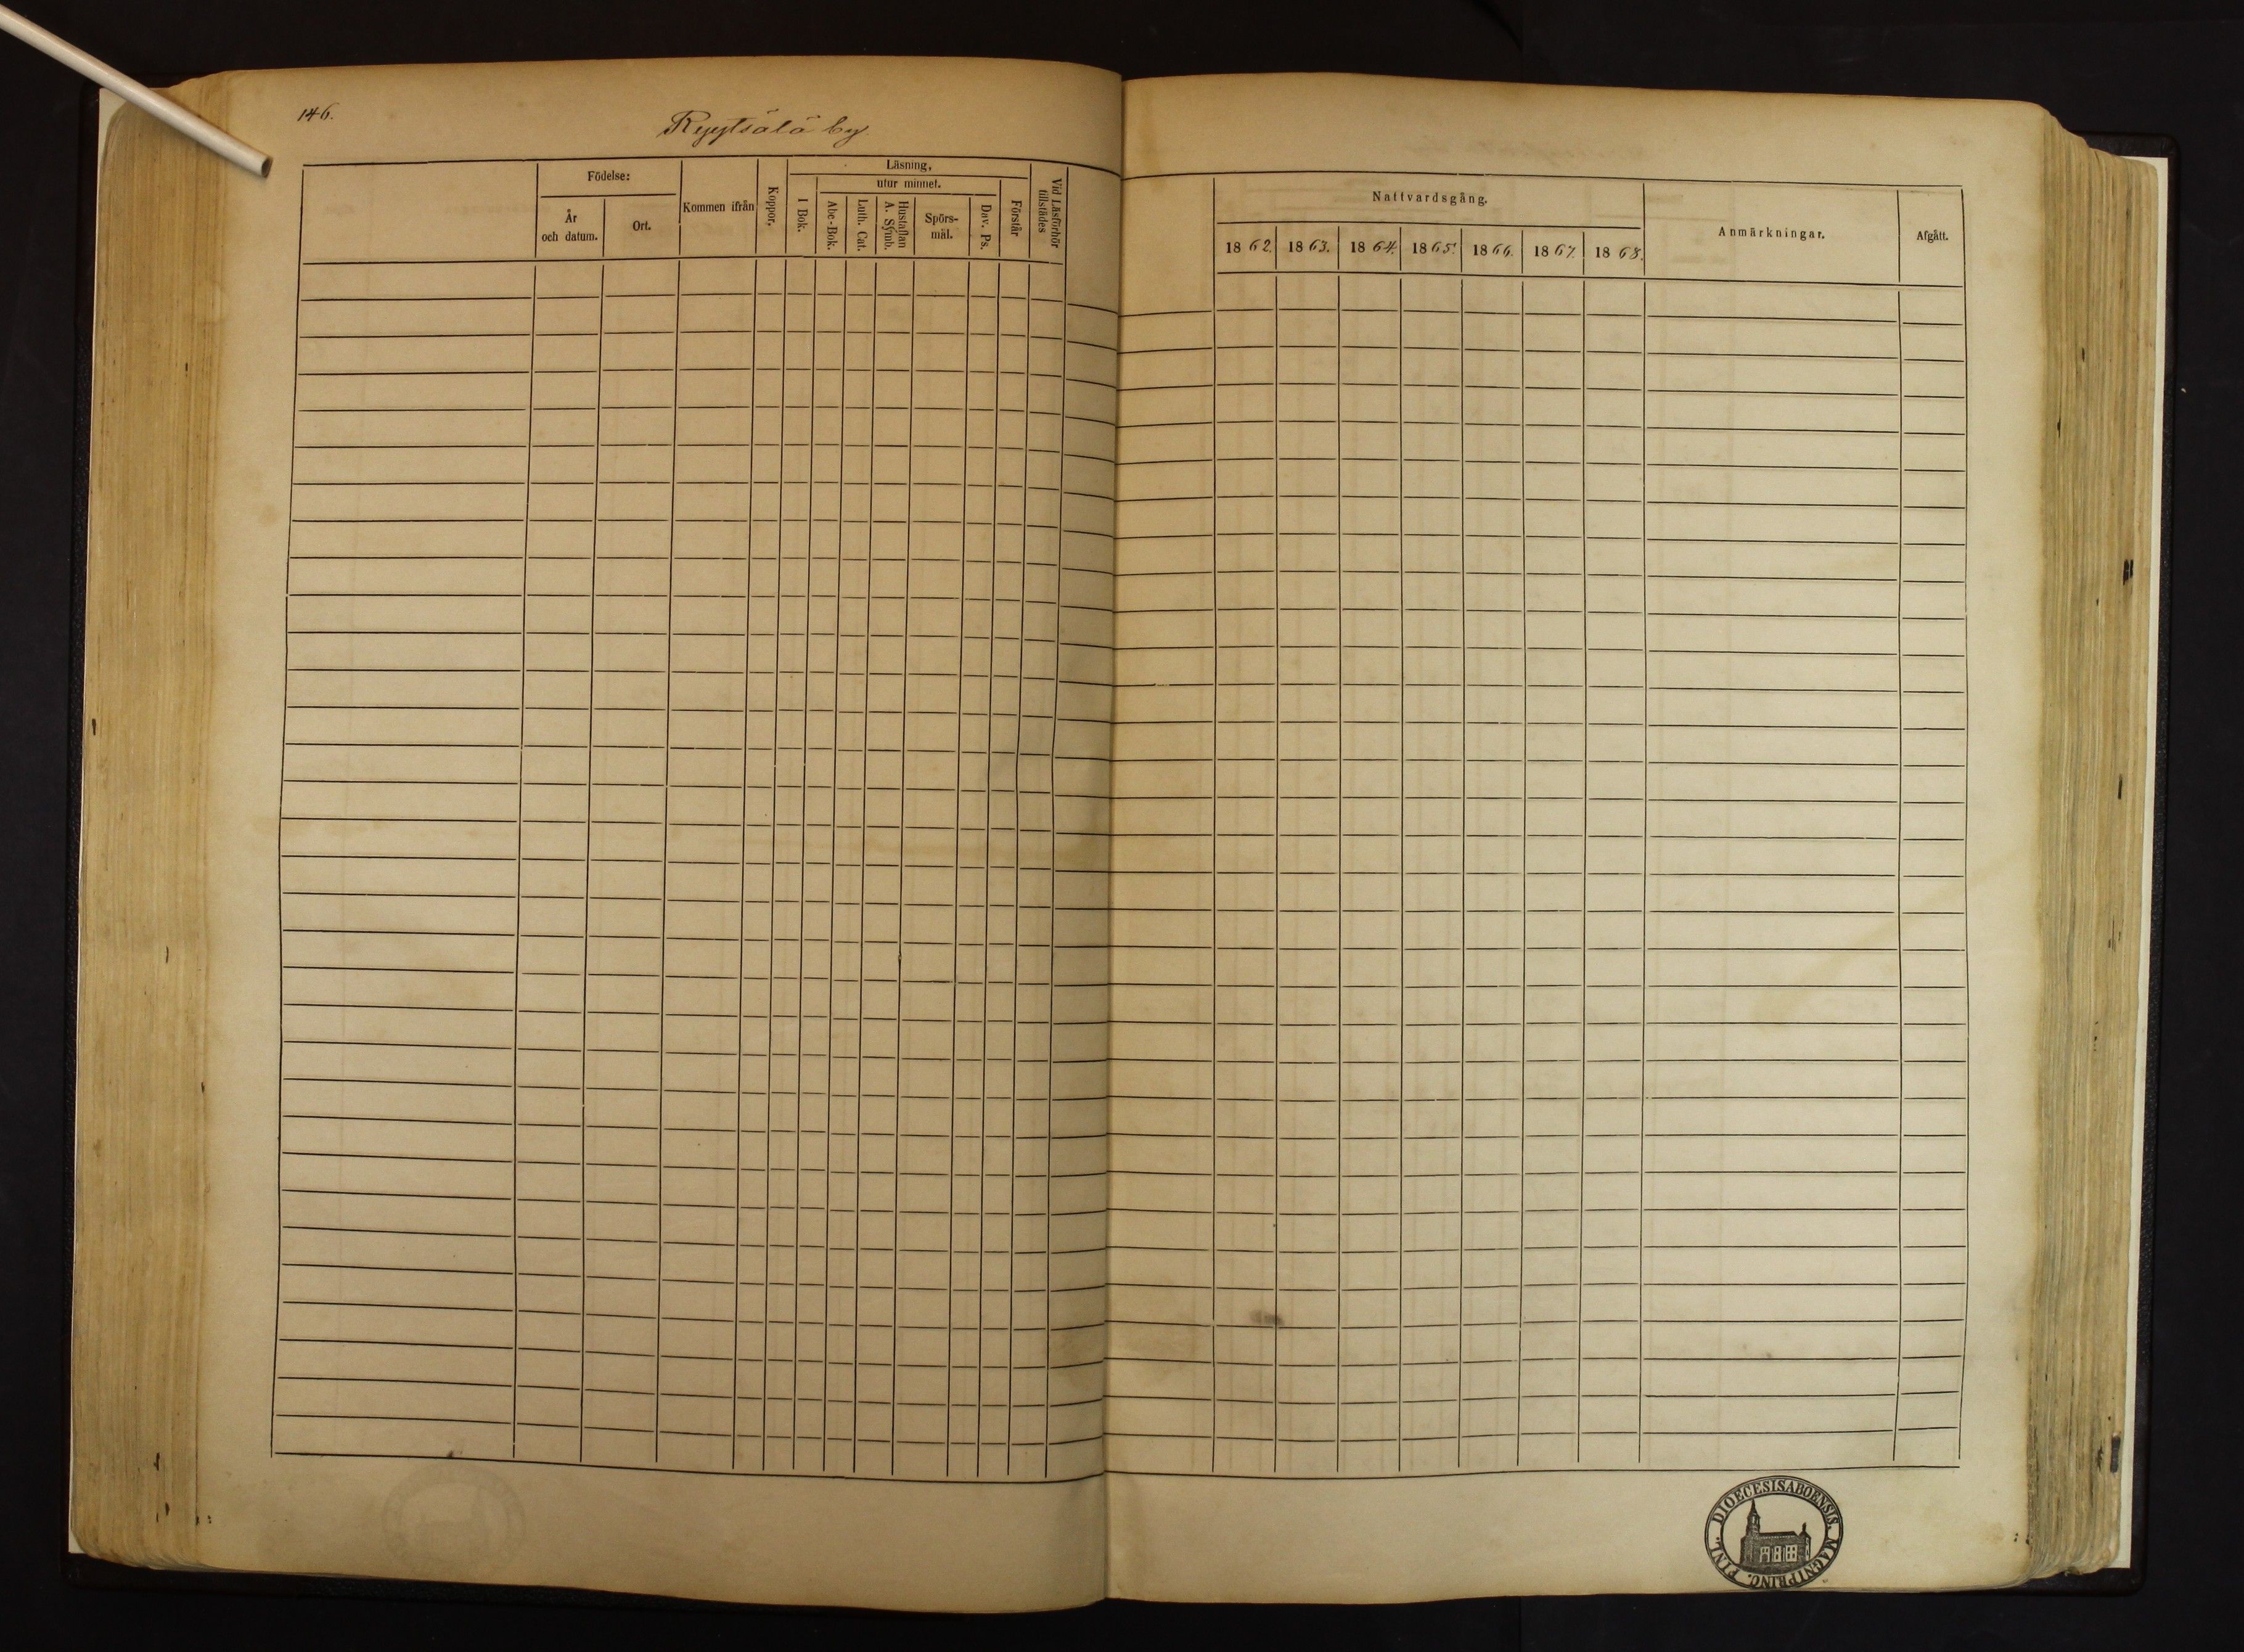 146.
Ryytsälä by
Födelse:
År
och datum.
Ort.
Kommen ifrån
Koppor.
Läsning,
utur minnet.
I Bok.
Abc-Bok.
Luth. Cat.
Hustaflan
A. Symb.
Spörs-
mål.
Dav. Ps.
Förstår
Vid Läsförhör
tillstädes
Nattvardsgång.
1862.
1863.
1864.
1865.
1866.
1867.
1868.
Anmärkningar.
Afgått.
DIOECESIS ABOENSIS. MAGNI PRINC. FINL.